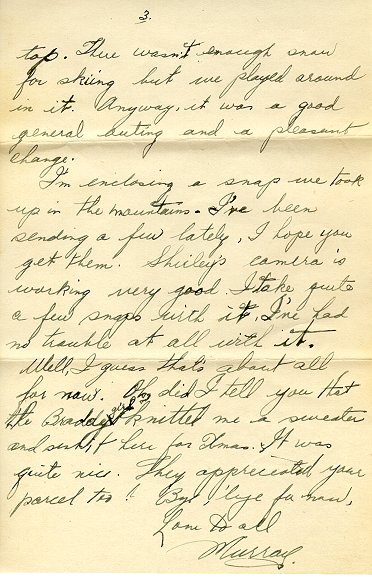 3.
top. There wasn't enough snow
for skiing but we played around
in it. Anyway, it was a good
general outing and a pleasant
change.
I'm enclosing a snap we took
up in the mountains. I've been
sending a few lately, I hope you
get them. Shirley's camera is
working very good. I take quite
a few snaps with it, I've had
no trouble at all with it.
Well, I guess that's about all
for now. Oh did I tell you that
the Bradley girls knitted me a sweater
and sent it here for Xmas. It was
quite nice. They appreciated your
parcel too! Bye, 'bye for now,
Love to all
Murray.